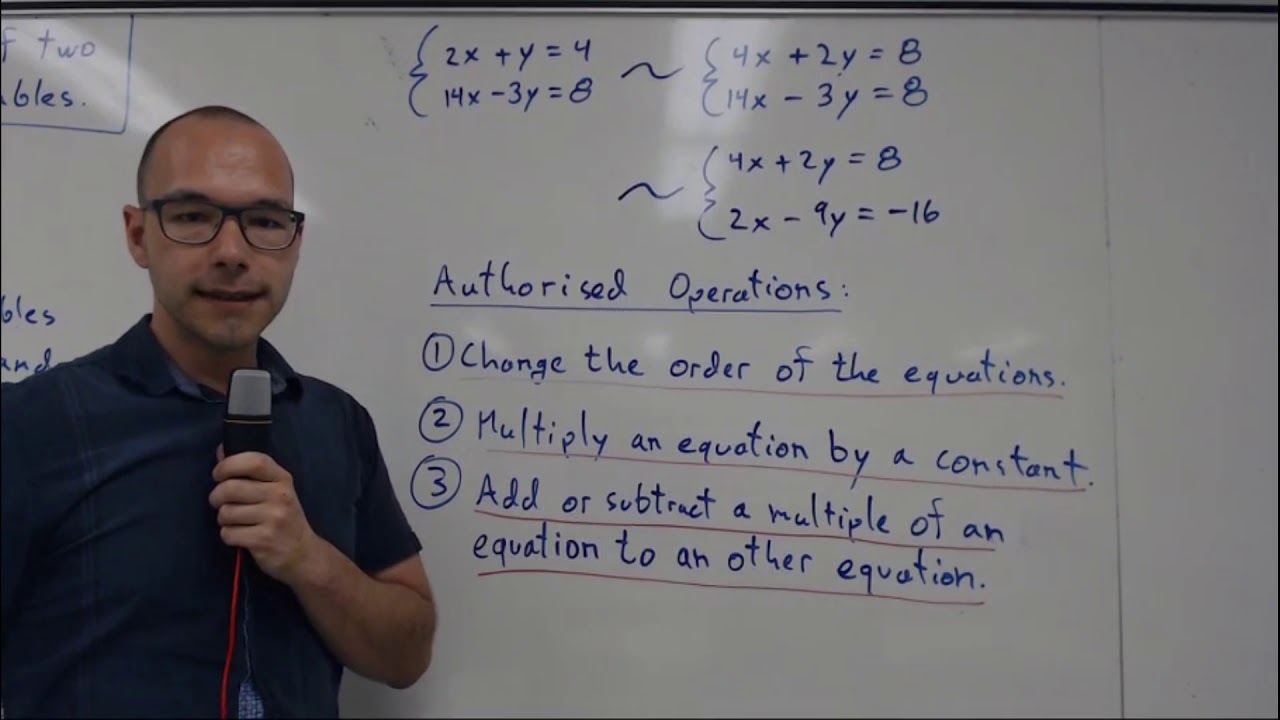 f two
ables.
2x + y = 4 ~ 4x + 2y = 8
14x - 3y = 8 14x - 3y = 8
~ 4x + 2y = 8
2x - 9y = -16
Authorised Operations:
bles
and
① Change the order of the equations.
② Multiply an equation by a constant.
③ Add or subtract a multiple of an
equation to an other equation.